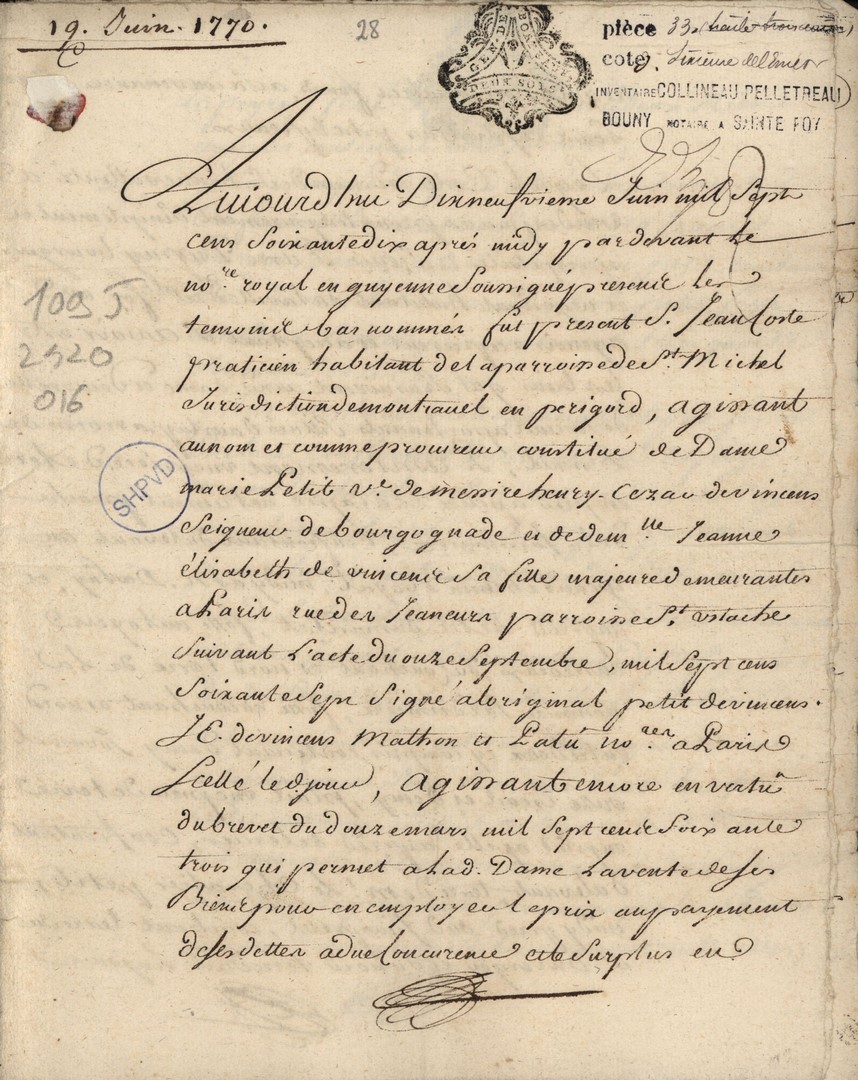 19. Juin. 1770.
28
GEN. DE BORDEAUX
DEUX SOLS
pièce 33.
cote
INVENTAIRE COLLINEAU PELLETREAU
BOUNY NOTAIRE A SAINTE FOY
109 J
2520
016
SHPVD
Aujourd'hui Dixneufvieme Juin mil Sept
cens Soixante dix aprés midy par devant le
no.re royal en guyenne Soussigné presence les
temoins bas nommés fut present S. Jean Coste
praticien habitant de la parroisse de St. Michel
Jurisdiction de montravel en perigord, agissant
au nom et comme procureur constitué de Dame
marie Petit ve. de messire henry-Cezar de vincens
Seigneur de bourgognade et de dem.lle Jeanne
élisabeth de vincens Sa fille majeure demeurantes
a Paris rue des Jeuneurs parroisse St. ustache
Suivant L'acte du onze Septembre, mil Sept cens
Soixante Sept Signé a loriginal petit de vincens.
J E. de vincens Mathon et Patu no.res a Paris
Scellé led jour, agissant encore en vertu
du brevet du douze mars mil Sept cens Soixante
trois qui permet a lad. Dame La vente de ses
Biens pour en employer le prix au payement
de ses dettes a due Concurence et le Surplus en